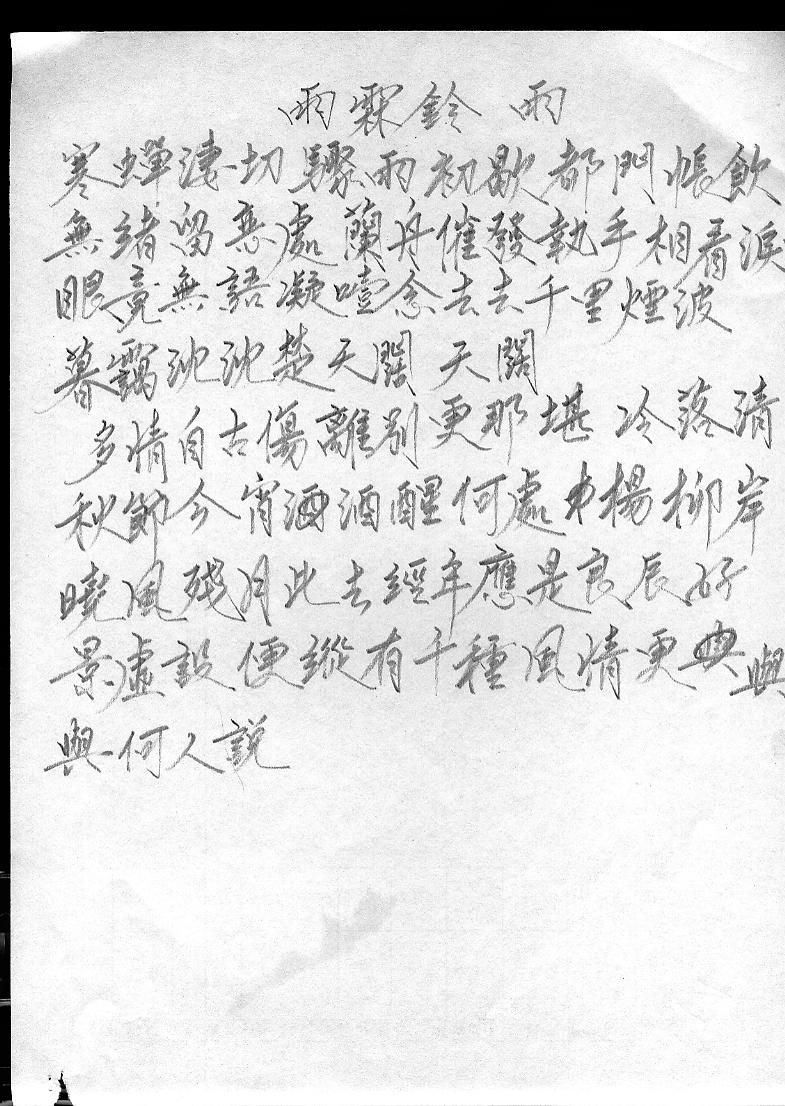 雨霖鈴 雨
寒蟬淒切驟雨初歇都門帳飲
無緒留戀處蘭舟催發執手相看淚
眼竟無語凝噎念去去千里煙波
暮靄沈沈楚天闊 天闊
多情自古傷離別更那堪冷落清
秋節今宵酒酒醒何處楊柳岸
曉風殘月此去經年應是良辰好
景虛設便縱有千種風情更與與
與何人說